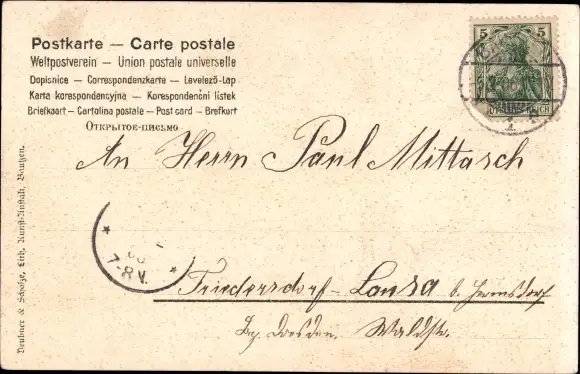 Postkarte — Carte postale
Weltpostverein — Union postale universelle
Dopisnice — Correspondenzkarte — Levelező-Lap
Karta korespondencyjna — Korespondenční lístek
Briefkaart — Cartolina postale — Post card — Brefkort
Открытое-письмо
5 5
REICH
An Herrn Paul Mittasch
7-8 V.
Friedersdorf-Lausa b. Hermsdorf
Bez. Dresden. Waldstr.
Deubner & Scholze, Lith. Kunst-Anstalt, Bautzen.